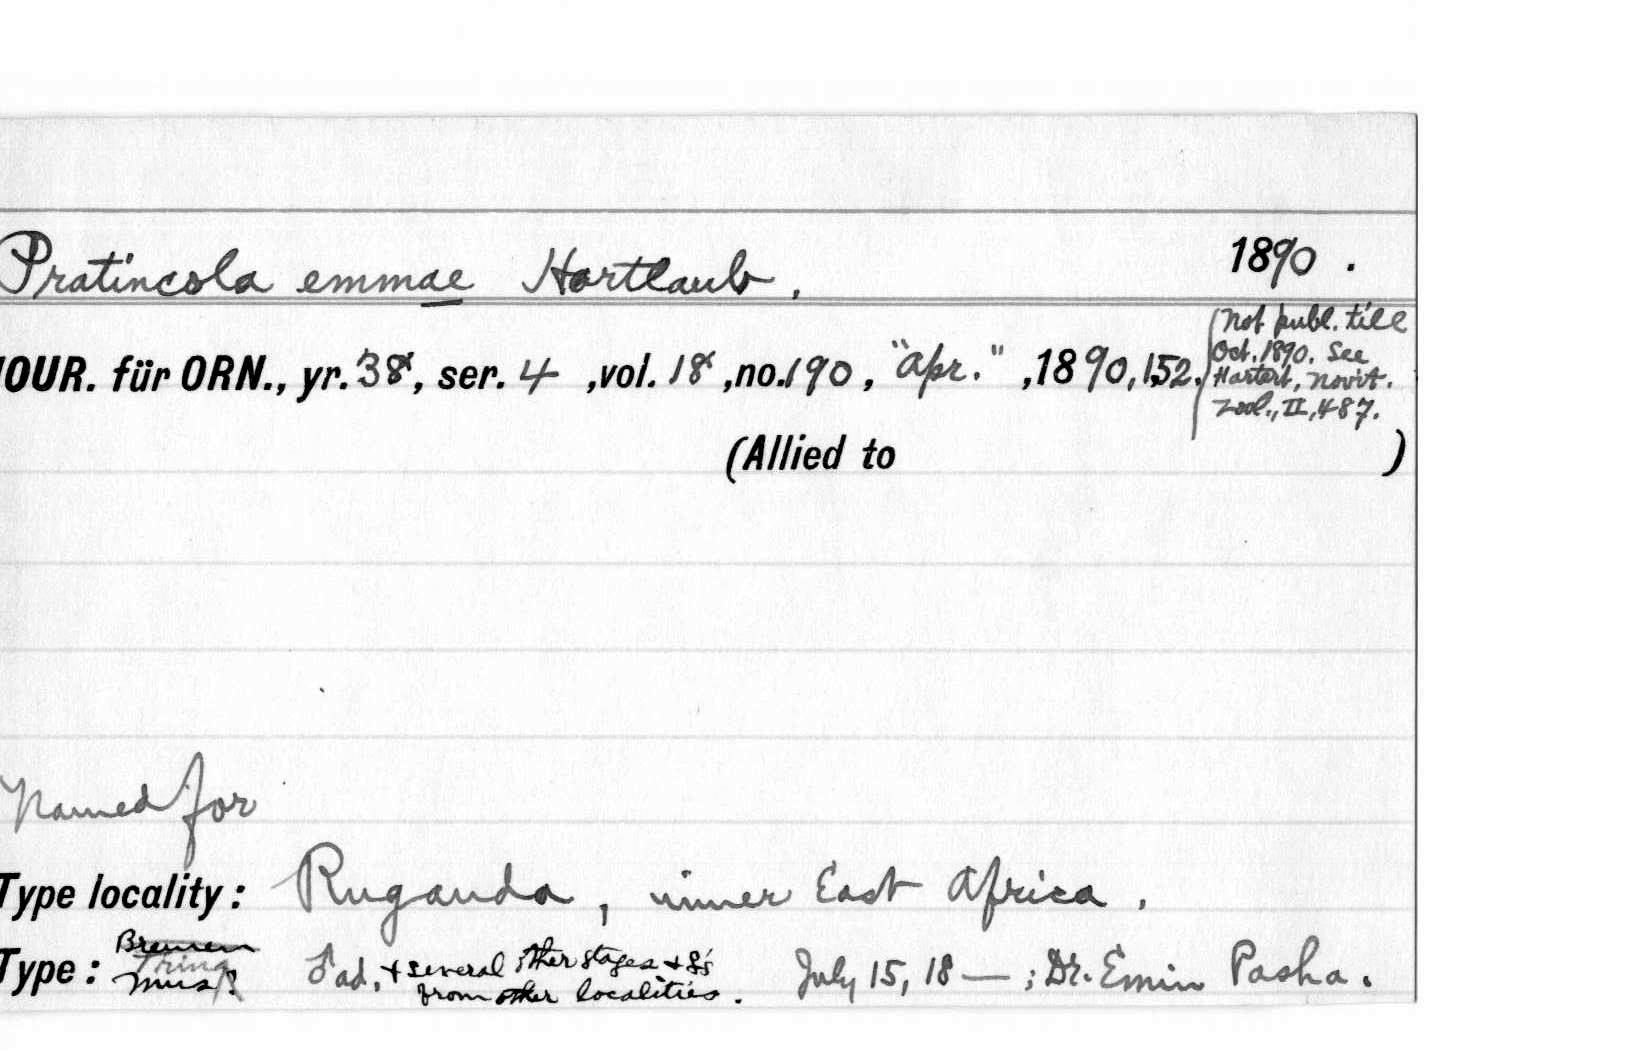 Pratincola emmae Hartlaub, 1890.
JOUR. für ORN., yr. 38, ser. 4, vol. 18, no. 190, "Apr.", 1890, 152.
(Not publ. till
Oct. 1890. See
Hartert, Novit.
Zool., II, 487.
(Allied to )
Named for
Type locality: Ruganda, inner East Africa.
Type: Bremen Mus. ♂ ad. + several other stages + from other localities. July 15, 18—; Dr. Emin Pasha.